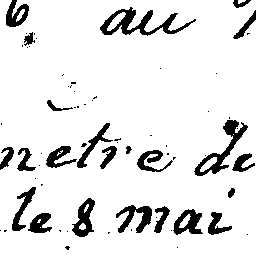 6. au
netre de
le 8 mai